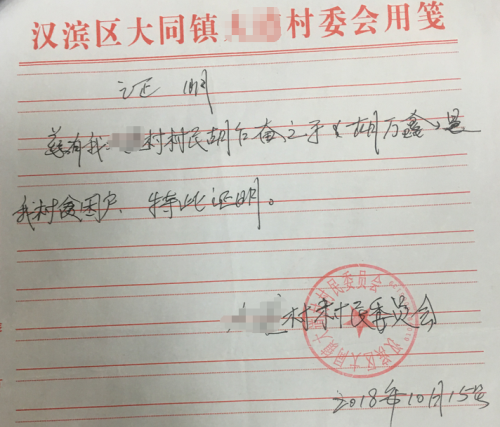 汉滨区大同镇 村委会用笺
证明
兹有我 村村民胡仁奋之子（胡万鑫）是
我村贫困户，特此证明。
村村民委员会
2018年10月15号